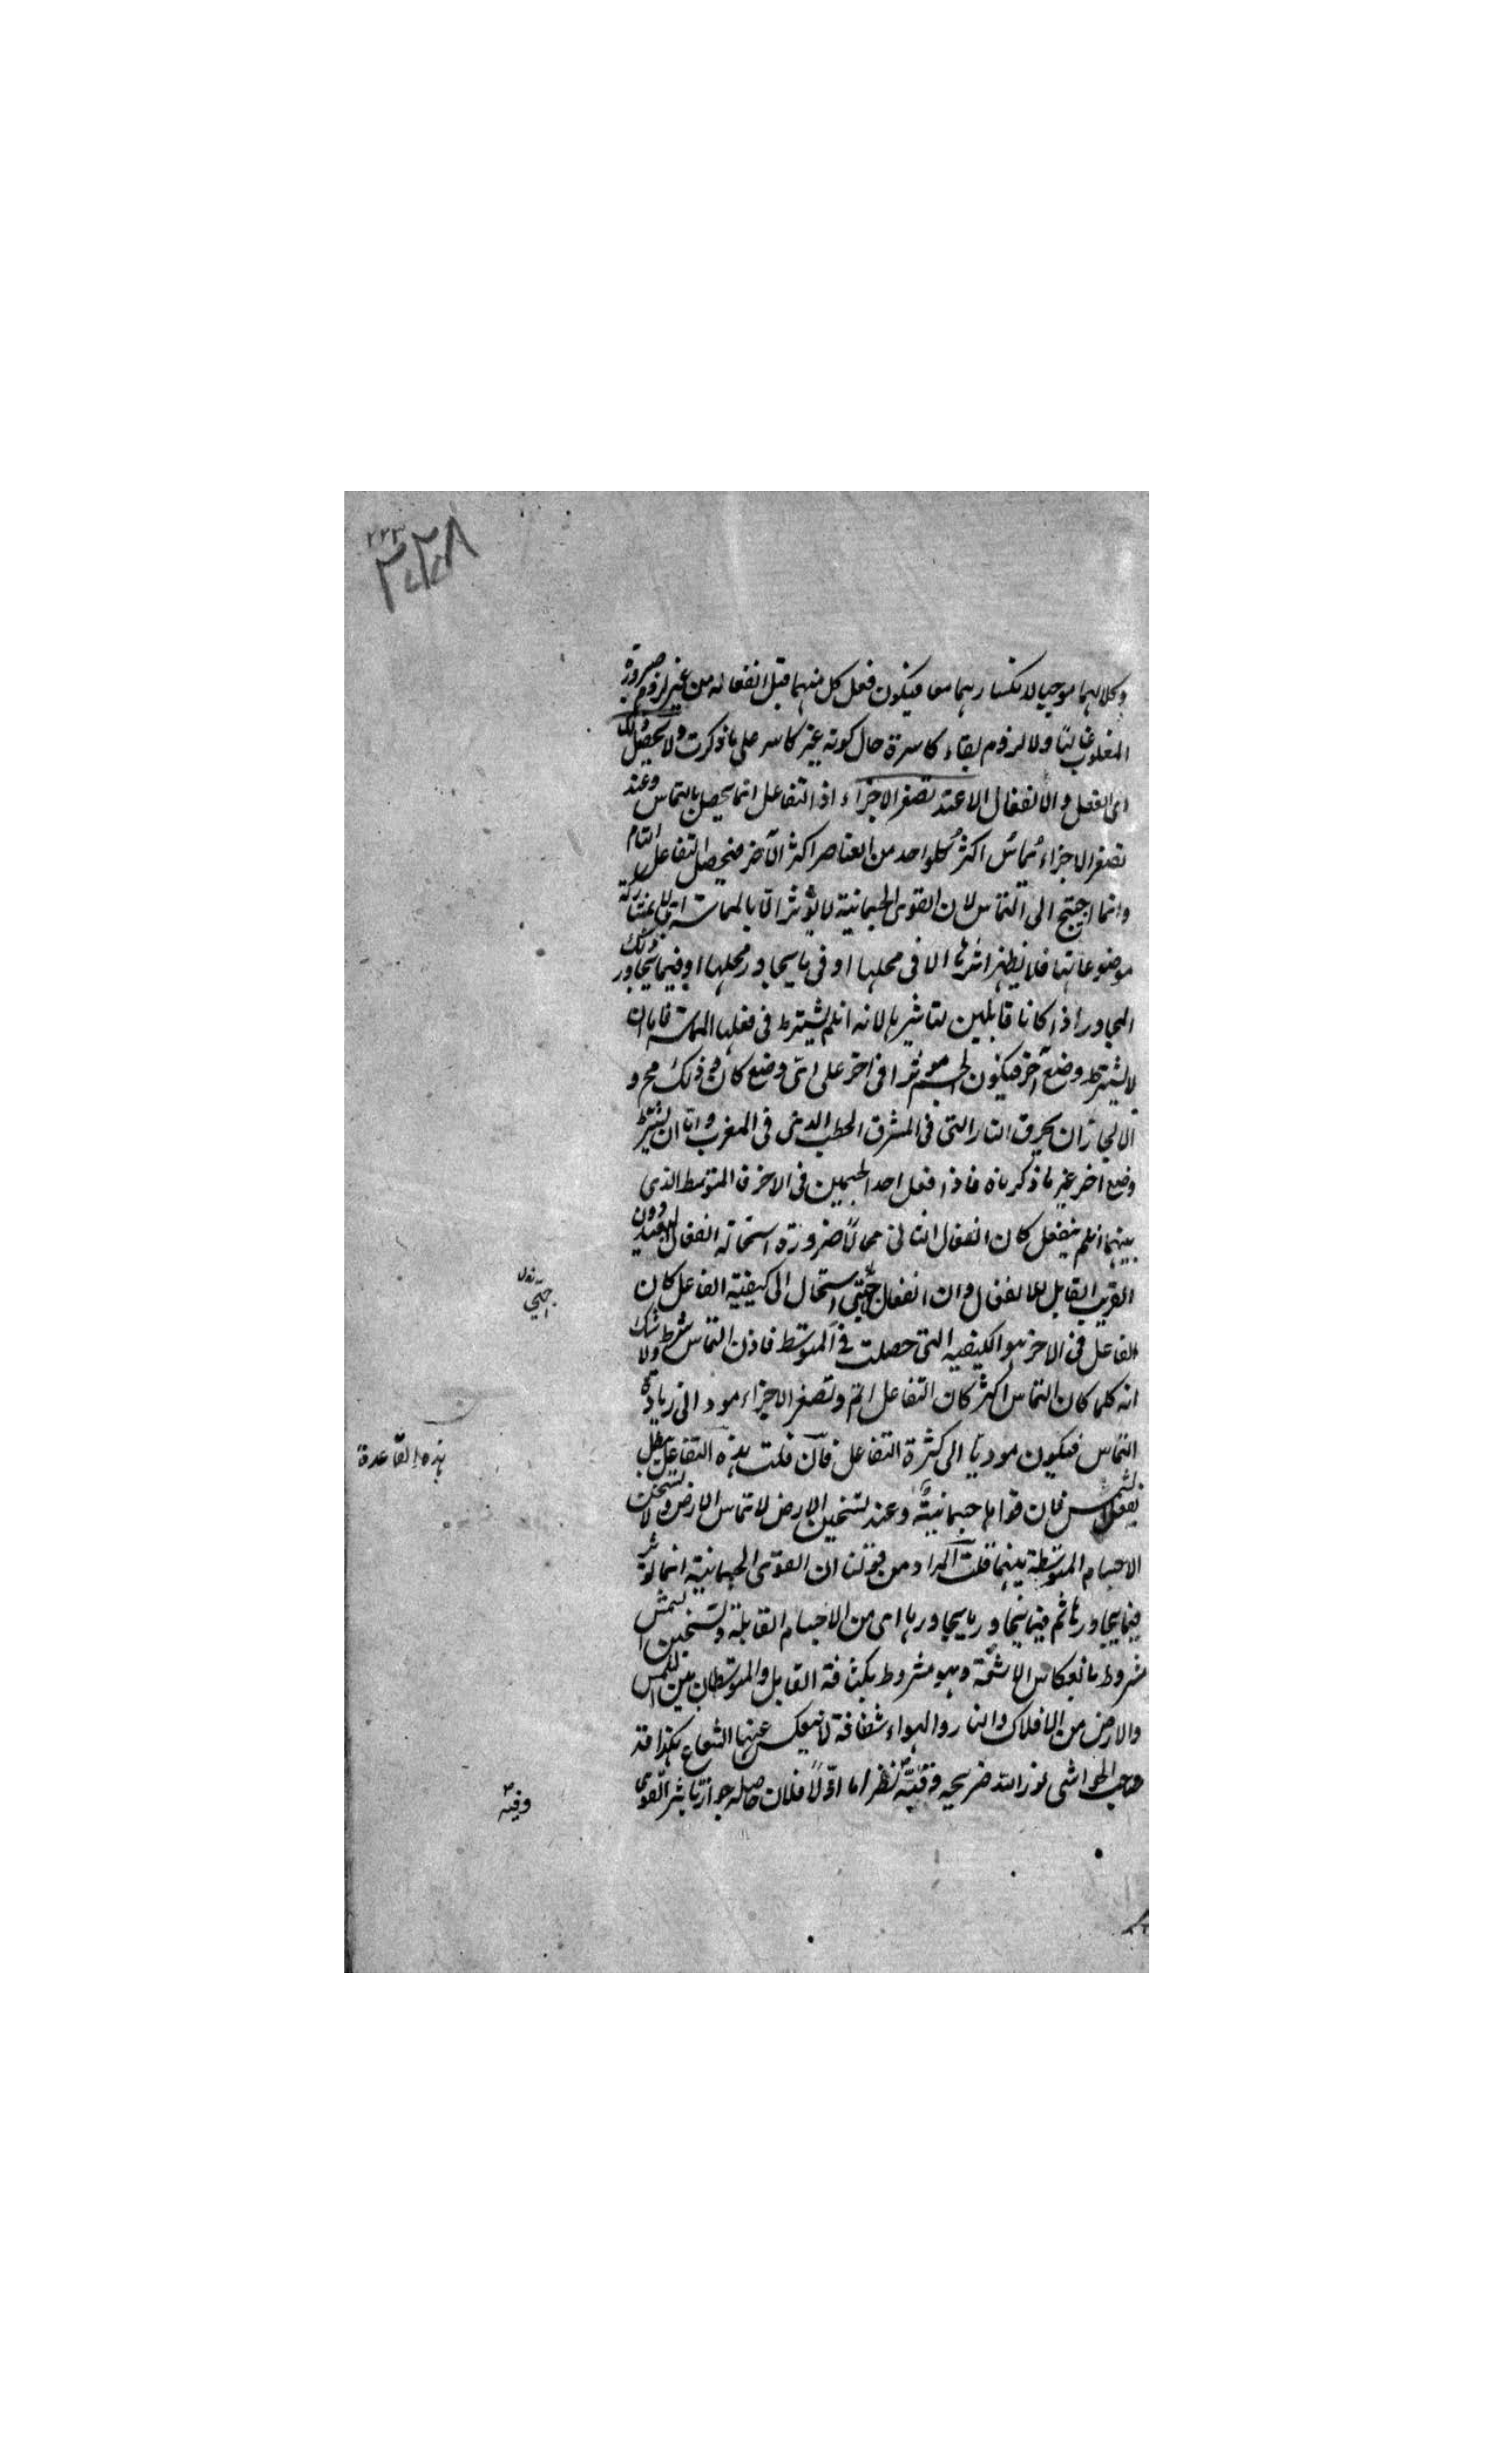 ٢٢٣
٣٢٨
وكلاهما موجبا لانكسارهما معا فيكون فعل كل منهما قبل انفعاله من غير لزوم صيرورة
المغلوب غالبا ولا لزوم بقاء كاسرة حال كونه غير كاسر على ما ذكرت ولا يحصل ذلك
اى الفعل والانفعال الا عند تصغر الاجزاء اذ التفاعل انما يحصل بالتماس وعند
تصغر الاجزاء يماس اكثر كل واحد من العناصر اكثر الآخر فيحصل التفاعل التام
وانما احتيج الى التماس لان القوى الجسمانية لا يؤثر الا بالمماسة اى بمشاركة
موضوعاتها فلا يظهر اثرها الا فى محلها او فى ما يجاور محلها او فيما يجاور ذلك
المجاور اذا كانا قابلين لتاثيرها لانه ان لم يشترط فى فعلها المماسة فاما ان
لا يشترط وضع آخر فيكون الجسم مؤثرا فى آخر على اى وضع كان وذلك مح و
الا لجاز ان يحرق النار التى فى المشرق الحطب الذى فى المغرب واما ان يشترط
وضع آخر غير ما ذكرناه فاذا فعل احد الجسمين فى الآخر فالمتوسط الذى
بينهما ان لم ينفعل كان انفعال الثانى محالا ضرورة استحالة انفعال البعيد دون
القريب القابل للانفعال وان انفعل حتى استحال الى كيفية الفاعل كان
الفاعل فى الآخر هو الكيفيه التى حصلت فى المتوسط فاذن التماس شرط ولا شك
انه كلما كان التماس اكثر كان التفاعل اتم وتصغر الاجزاء مود الى زيادة
التماس فيكون موديا الى كثرة التفاعل فان قلت هذه التفاعل يبطل
بفعل الشمس فان قواها جسمانية وعند تسخين الارض لا تماس الارض ولا تسخن
الاجسام المتوسطة بينهما قلت المراد من قولنا ان القوى الجسمانية انما تؤثر
فيما يجاورها ثم فيما يجاور ما يجاورها اى من الاجسام القابلة وتسخين الشمس
مشروط بانعكاس الاشعة وهو مشروط بكثافة القابل والمتوسطات بين الشمس
والارض من الافلاك والنار والهواء شفافة لا ينعكس عنها الشعاع هكذا قد
صاحب الحواشى نور الله ضريحه وفيه نظر اما اولا فلان حاصله جواز تاثير القوى
حتى
هذه القاعدة
وفيه